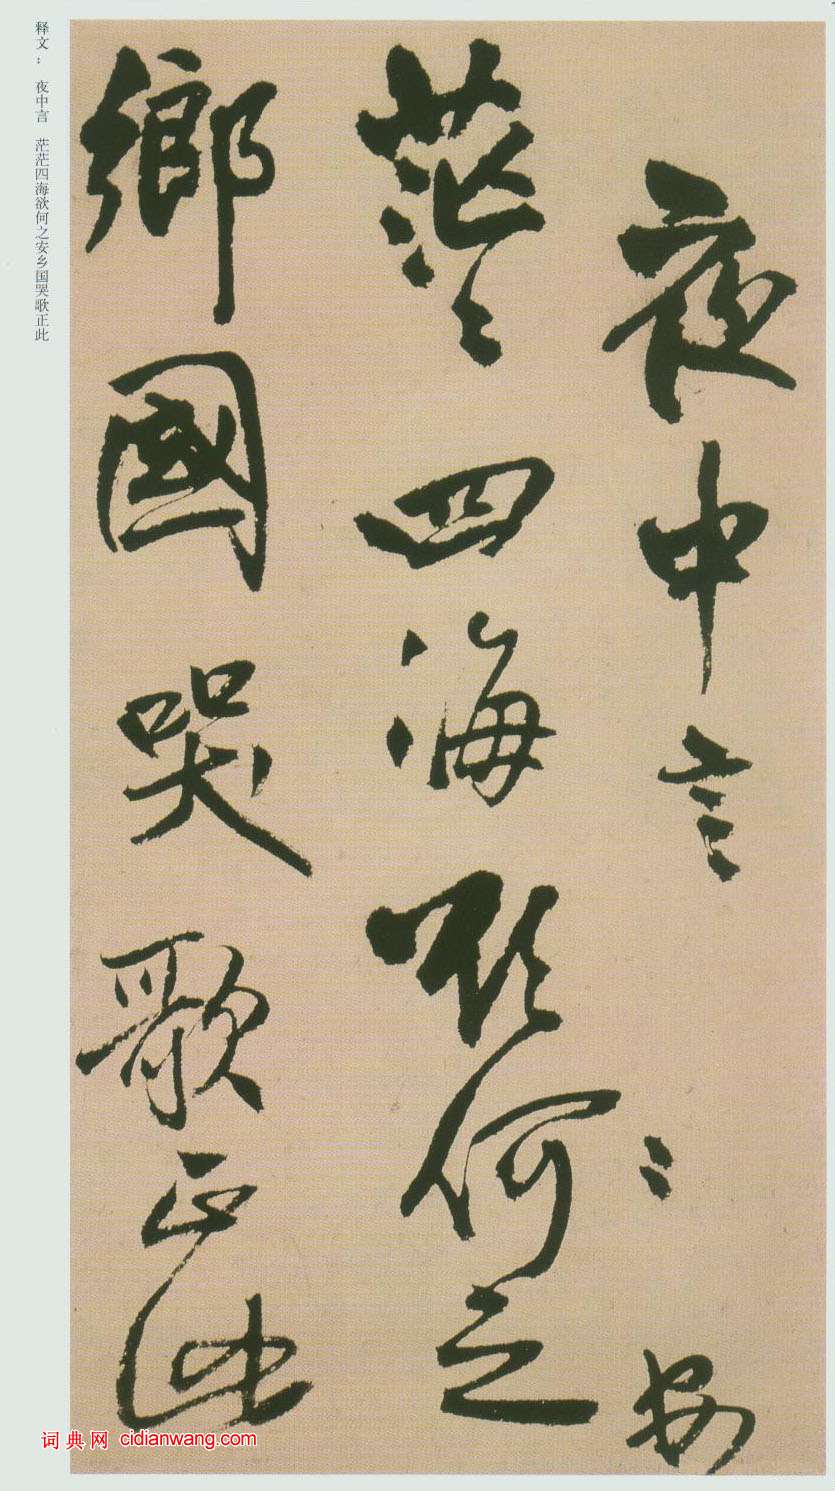 夜中言
安
茫〻四海欲何之
鄉國哭歌正此
释文： 夜中言 茫茫四海欲何之安乡国哭歌正此
词典网 cidianwang.com